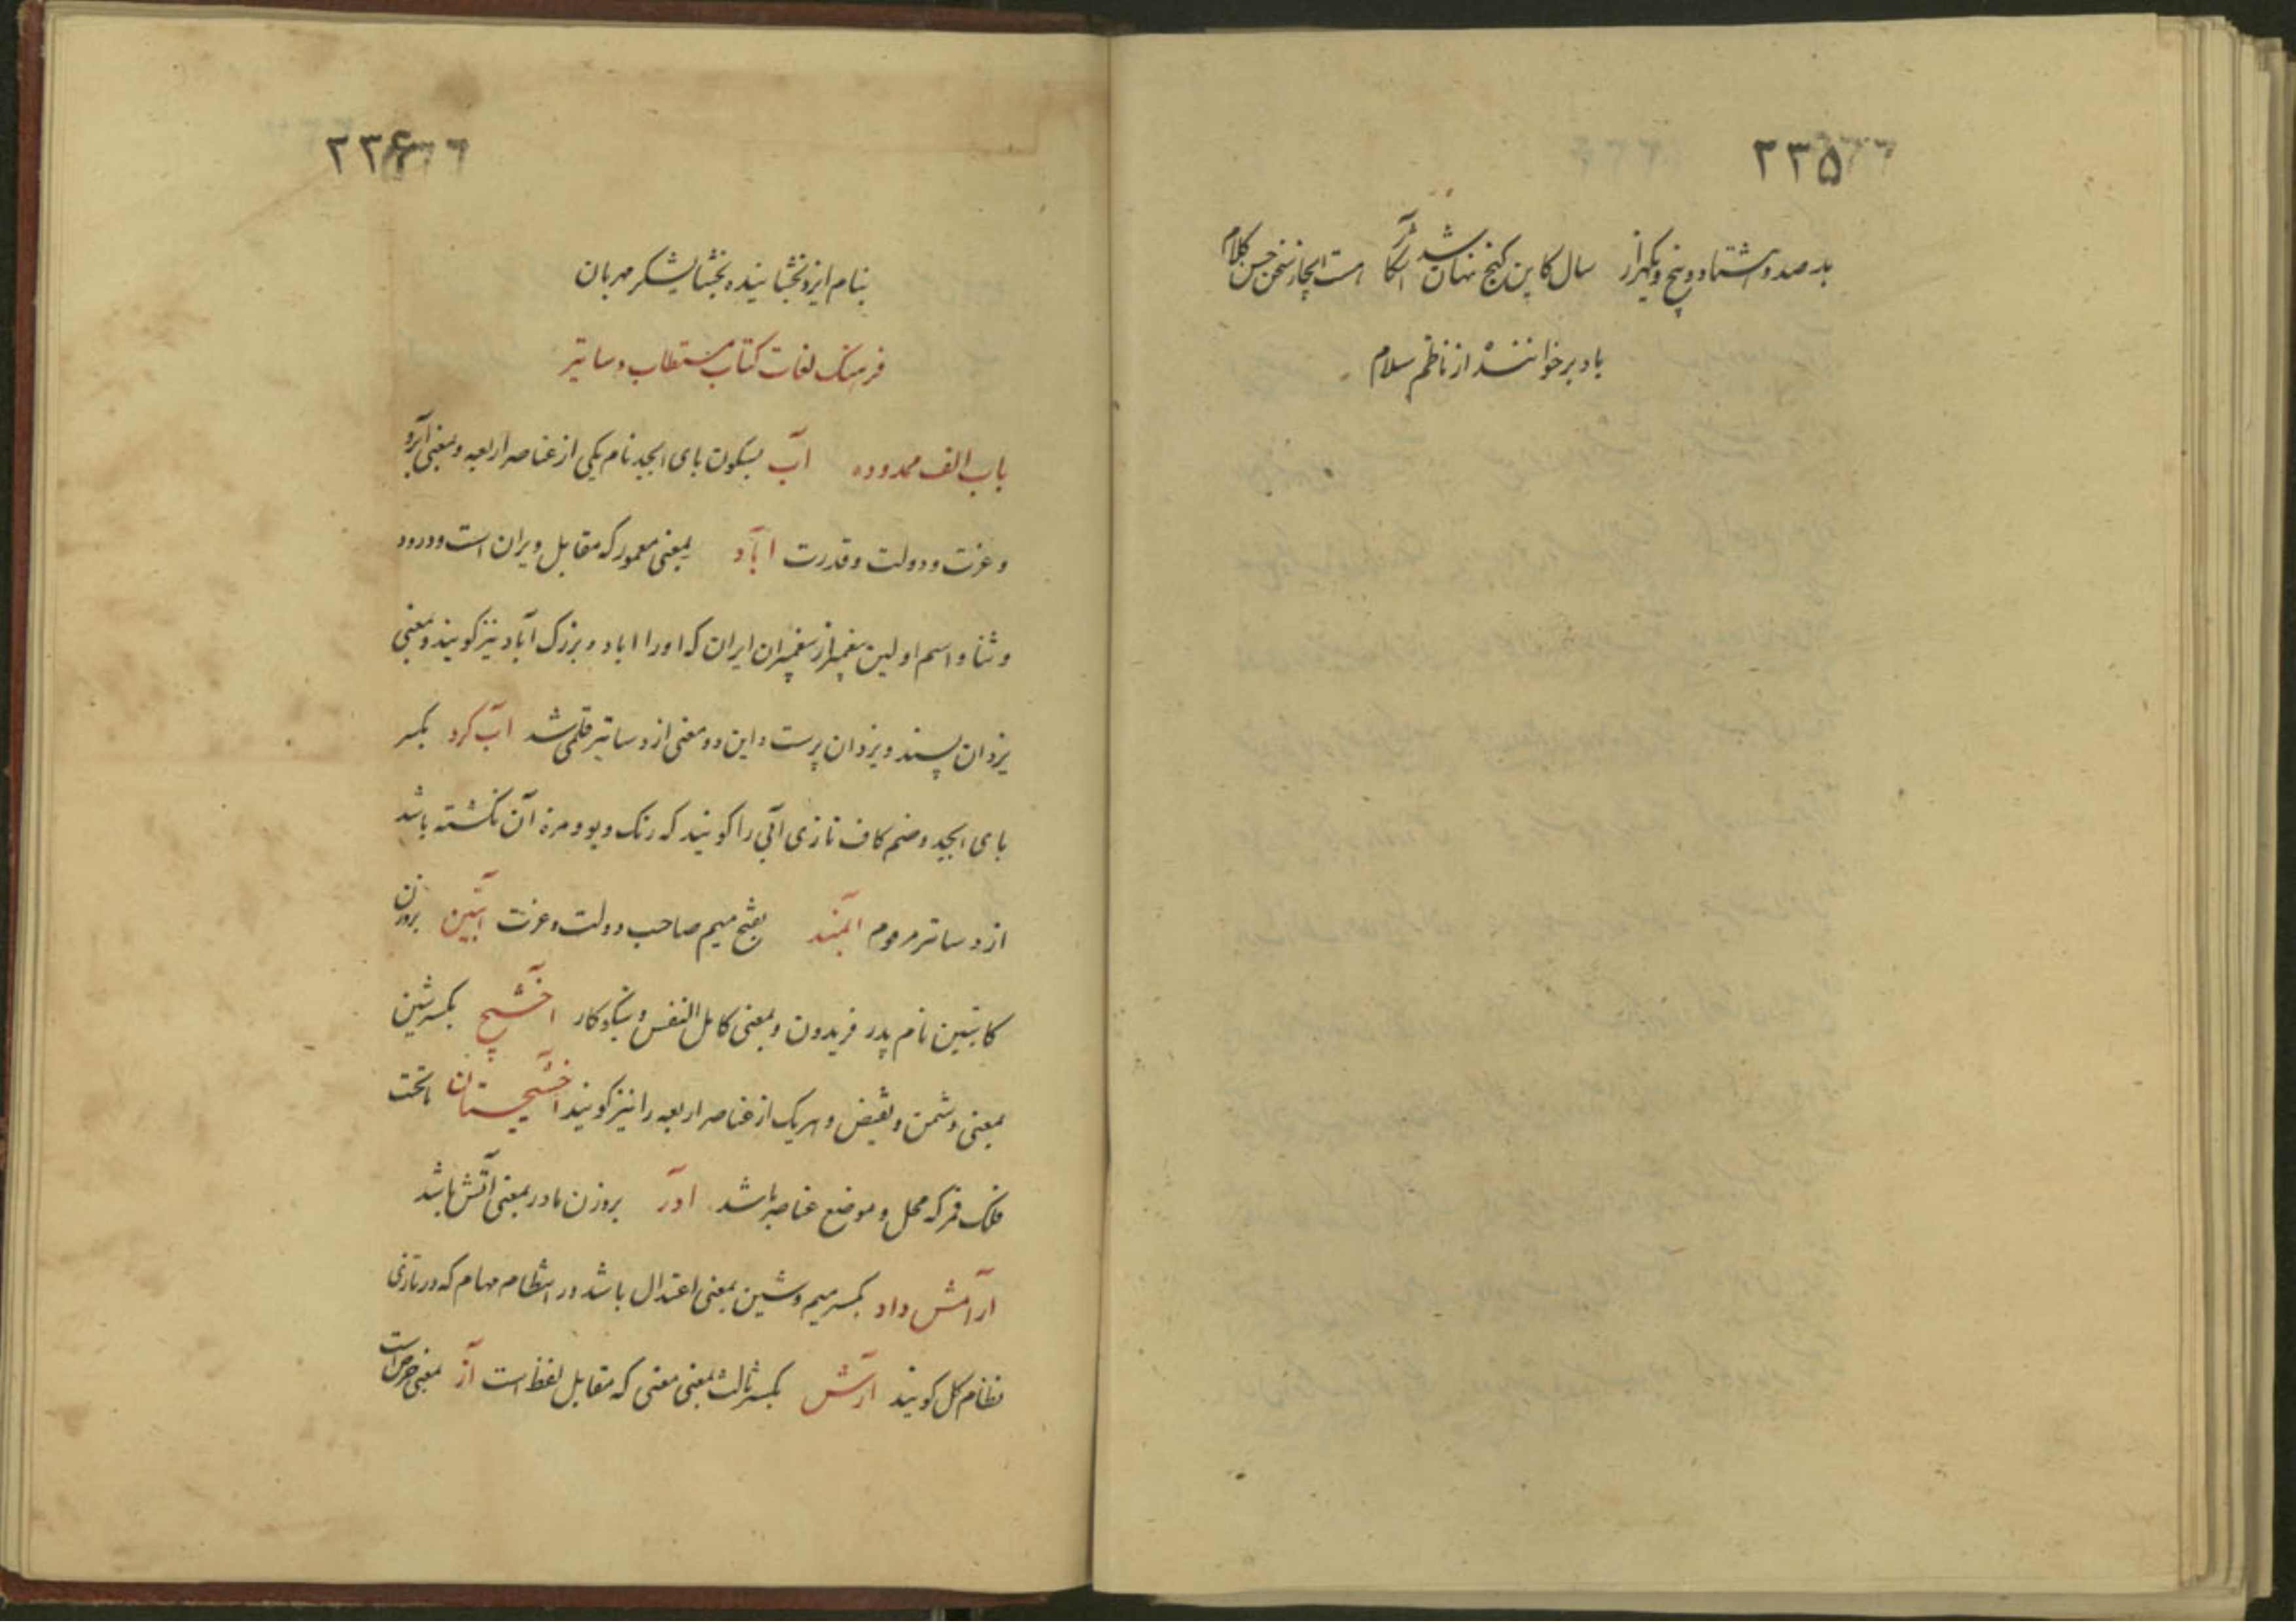 ۲۳۵
بد صد و هشتاد و پنج و یکهزار سال کاین گنج نهان شد آشکار هست ایجاز سخن حسن کلام
باد بر خواننده از ناظم سلام
۲۳۶
بنام ایزد بخشاینده بخشایشگر مهربان
فرهنک لغات کتاب مستطاب دساتیر
باب الف ممدوده آب بسکون بای ابجد نام یکی از عناصر اربعه و بمعنی آبرو
و عزت و دولت و قدرت آباد بمعنی معمور که مقابل ویران است و درود
و ثنا و اسم اولین پیغمبر از پیغمبران ایران که او را اباد و بزرک آباد نیز کویند و بمعنی
یزدان پسند و یزدان پرست و این دو معنی از دساتیر قلمی شد آب کرد بکسر
بای ابجد و ضم کاف تازی آبی را کویند که رنک و بو و مزه آن نکشته باشد
از دساتیر مرموم آبمند بفتح میم صاحب دولت و عزت آبتین بروزن
کابتین نام پدر فریدون و بمعنی کامل النفس و نیکوکار آخشیج بکسر شین
بمعنی دشمن و نقیض و هریک از عناصر اربعه را نیز کویند آخشیجستان ماتحت
فلک قمر که محل و موضع عناصر باشد آدر بروزن مادر بمعنی آتش باشد
آرامش داد بکسر میم و شین بمعنی اعتدال باشد در انتظام مهام که در تازی
نظام کل کویند آرش بکسر ثالث بمعنی معنی که مقابل لفظ است آز بمعنی حرص است